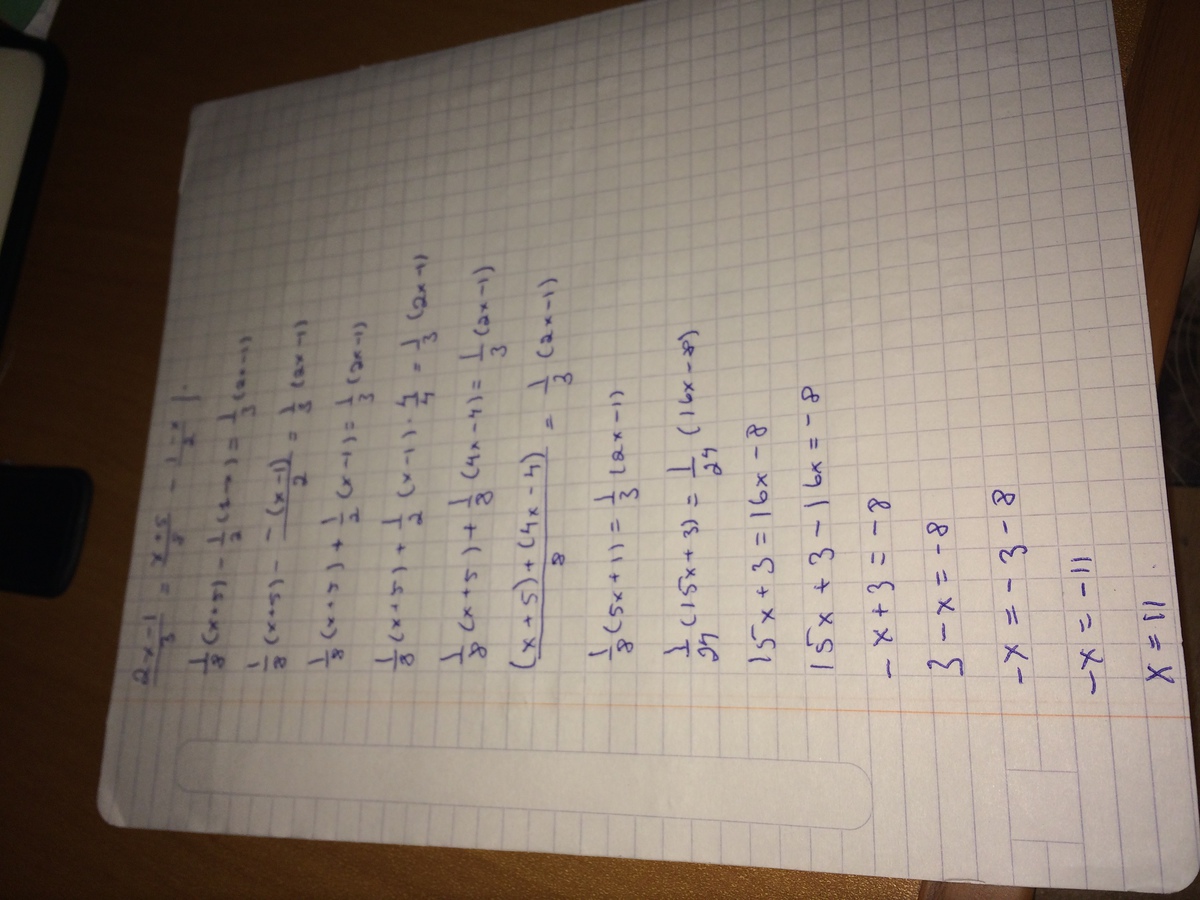 2x-1/3 = x+5/8 - 1-x/2 |.
1/8 (x+5) - 1/2 (1-x) = 1/3 (2x-1)
1/8 (x+5) - -(x-1)/2 = 1/3 (2x-1)
1/8 (x+5) + 1/2 (x-1) = 1/3 (2x-1)
1/8 (x+5) + 1/2 (x-1) · 4/4 = 1/3 (2x-1)
1/8 (x+5) + 1/8 (4x-4) = 1/3 (2x-1)
(x+5)+(4x-4)/8 = 1/3 (2x-1)
1/8 (5x+1) = 1/3 (2x-1)
1/24 (15x+3) = 1/24 (16x-8)
15x+3=16x-8
15x+3-16x=-8
-x+3=-8
3-x=-8
-x=-3-8
-x=-11
x=11